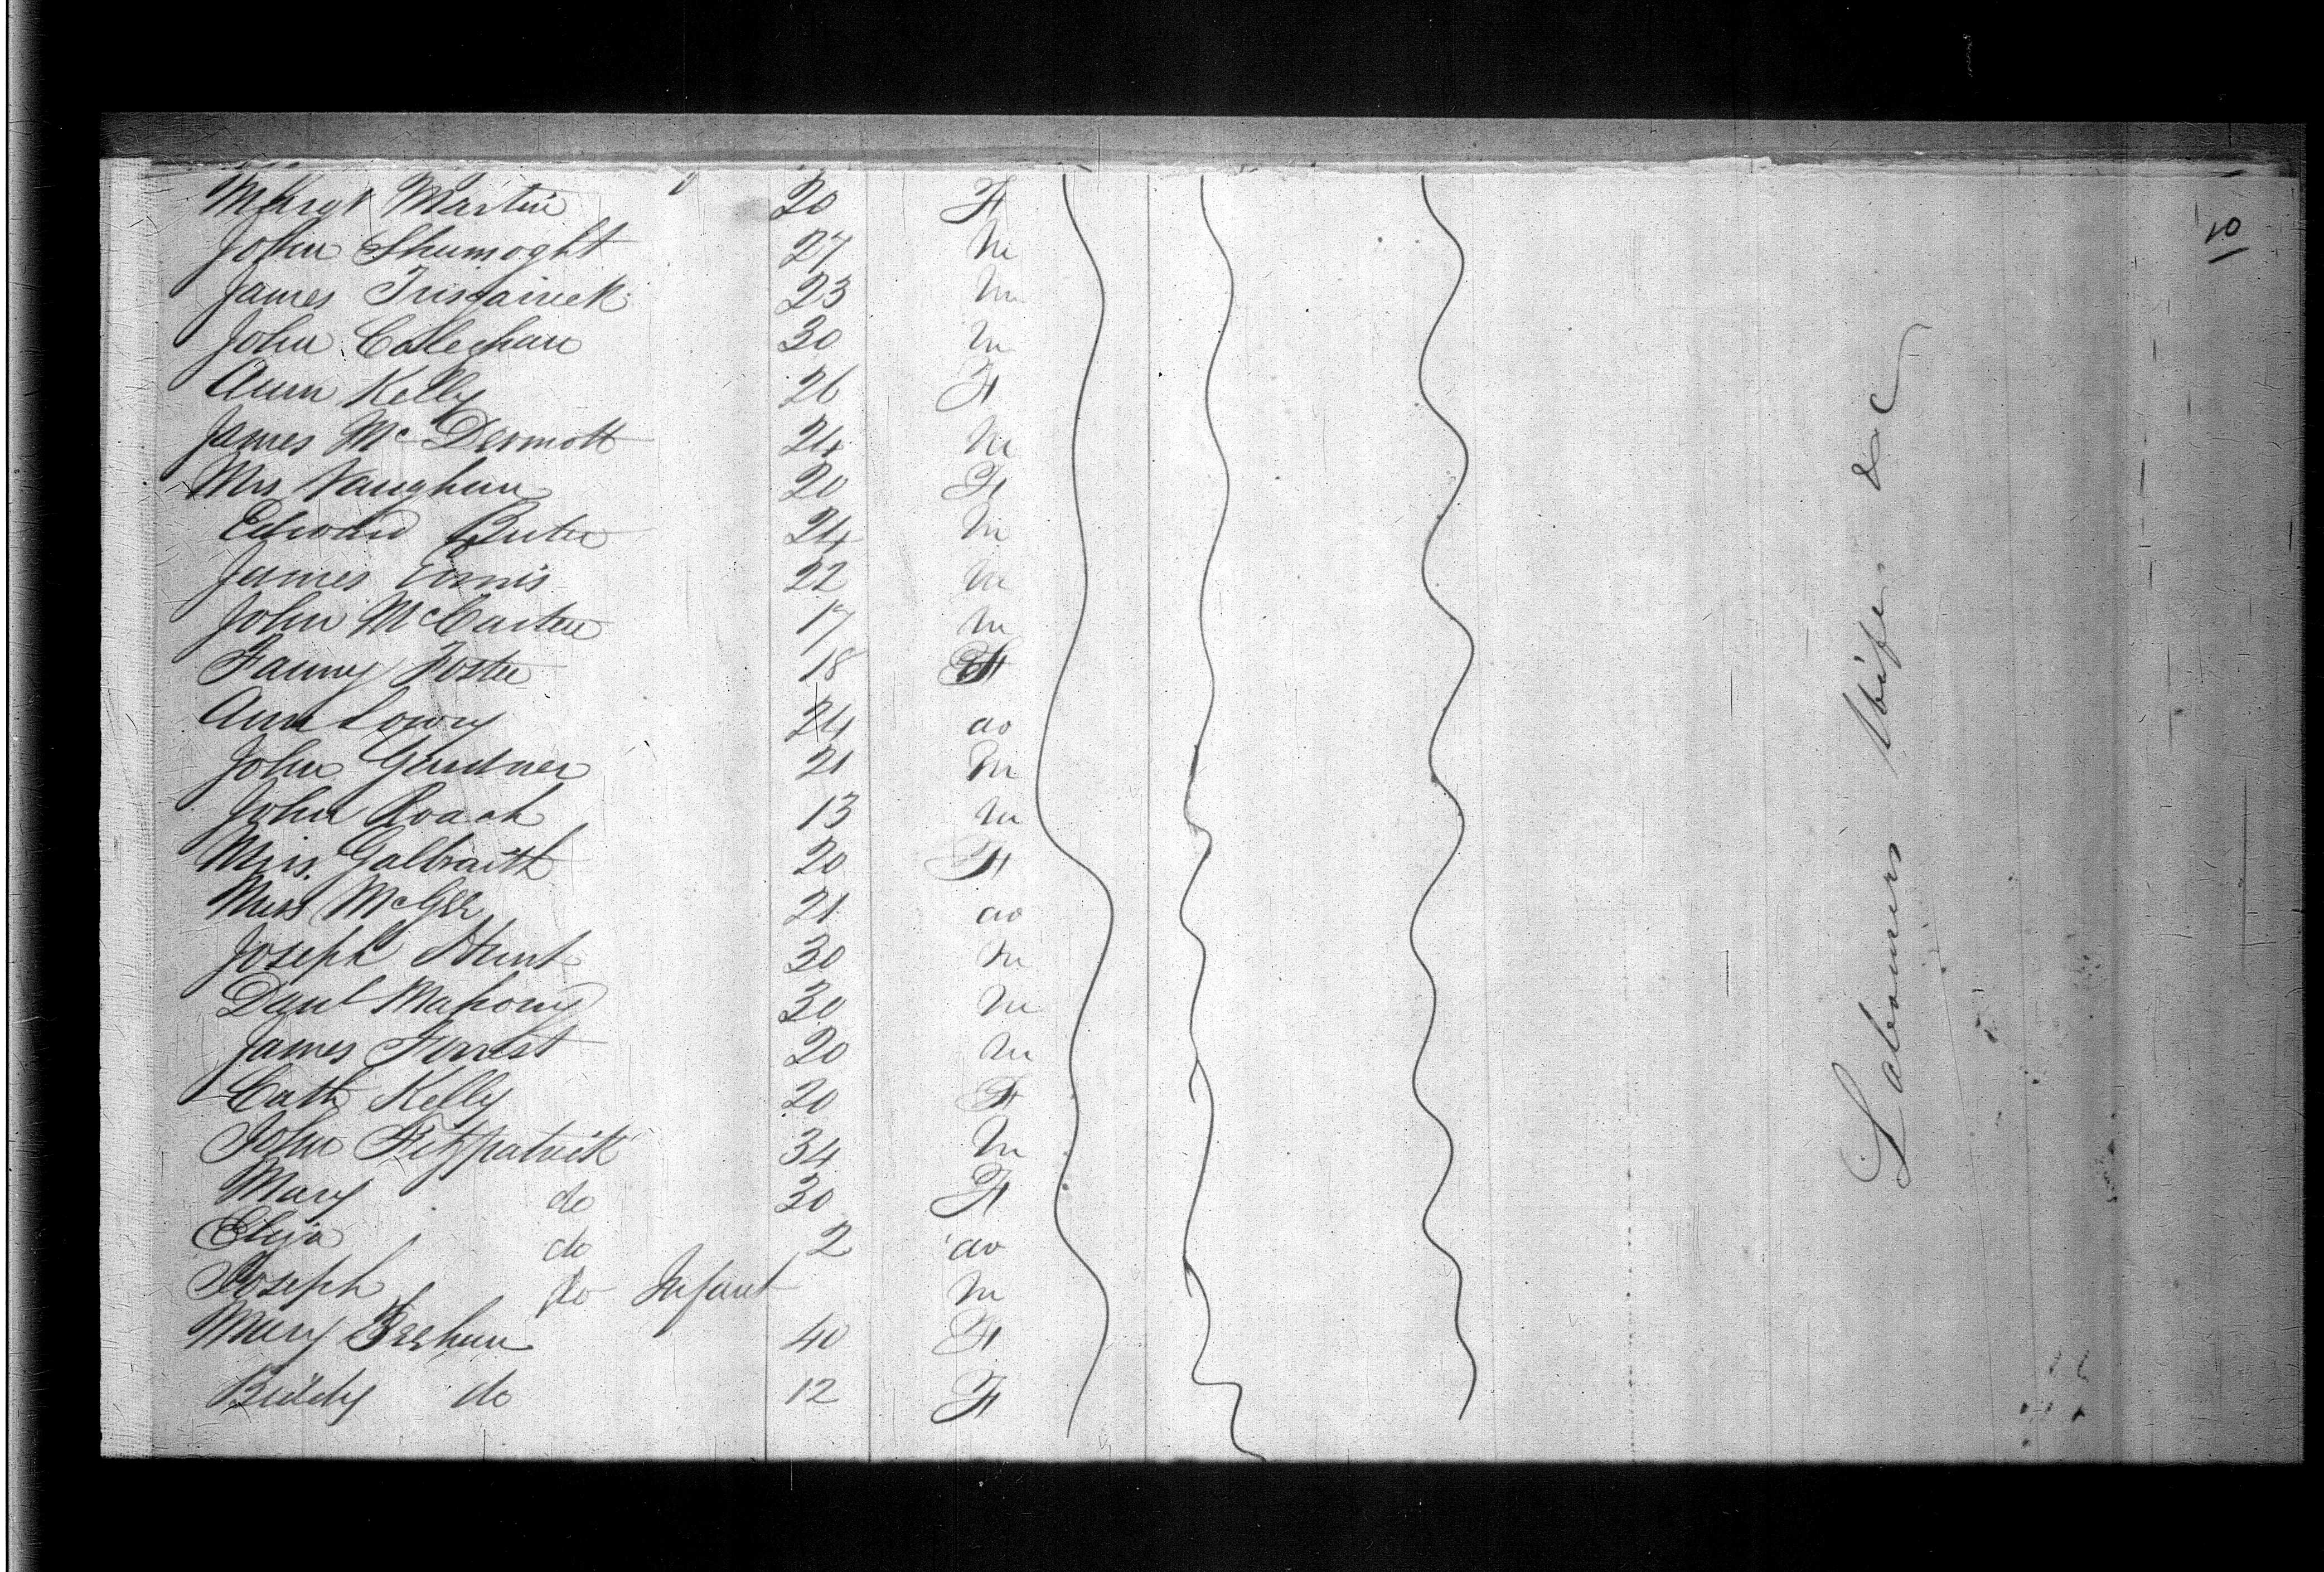 Martin 20 F
John Shumoght 27 M
James 23 M
John Caleghan 30 M
Ann Kelly 26 F
James McDermott 24 M
Mrs Vaughan 20 F
Edward 24 M
James Ennis 22 M
John McCarter 17 M
Fanny Foster 18 F
Ann Lowry 24 do
John Gardner 21 M
John Roach 13 M
Miss Galbraith 20 F
Miss McGee 21 do
Joseph Hunt 30 M
Danl Mahony 30 M
James Forrest 20 M
Cath Kelly 20 F
John Fitzpatrick 34 M
Mary do 30 F
Eliza do 2 do
Joseph do Infant M
Mary 40 F
Biddy do 12 F
Labourers Wife &c
10